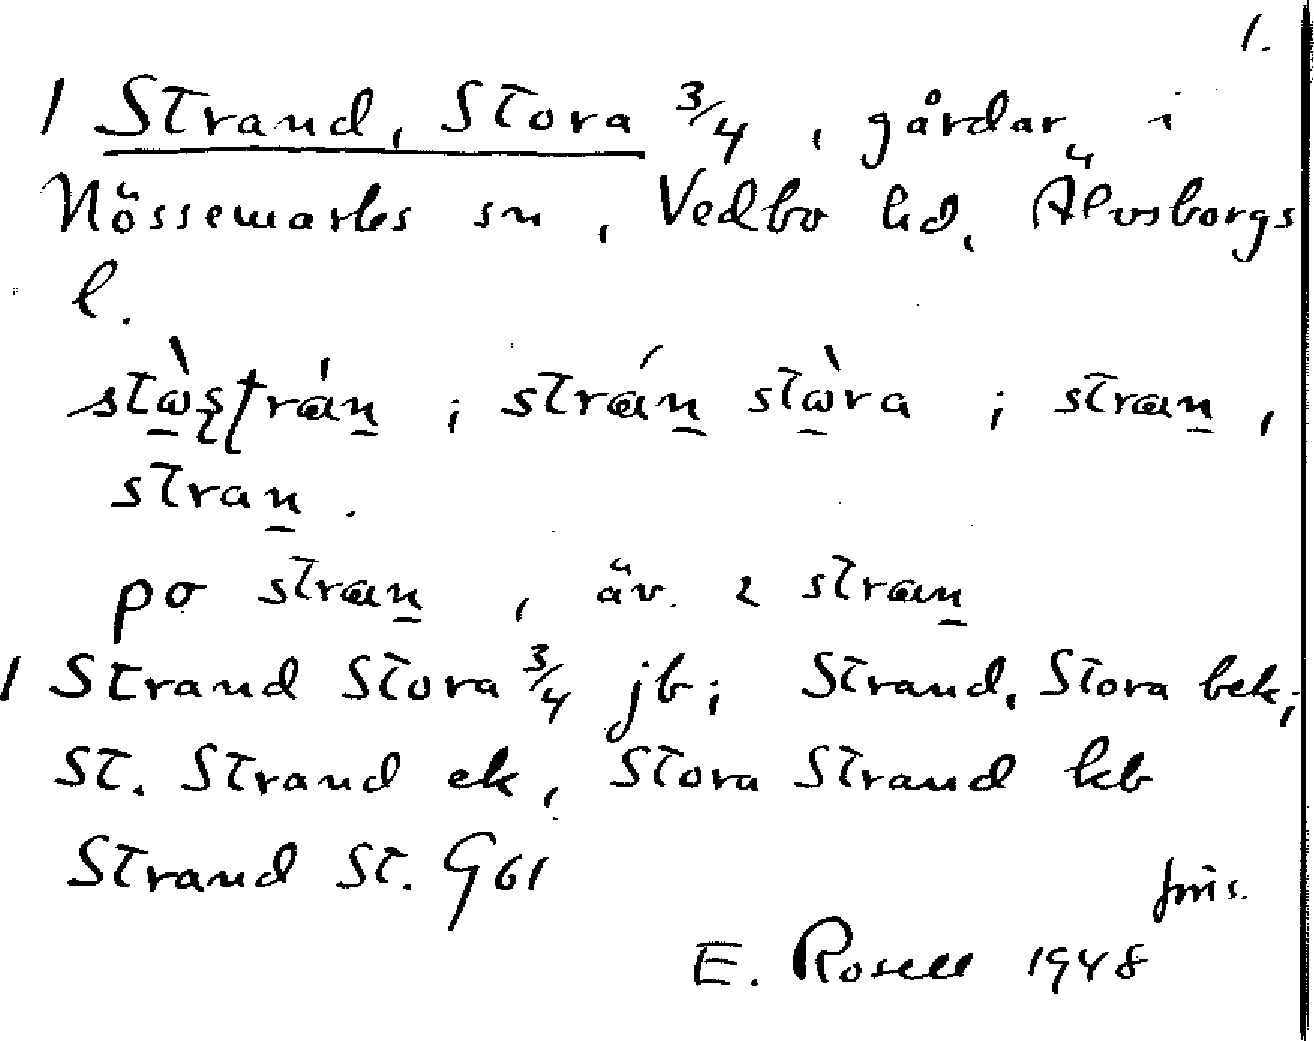 1.
1 Strand, Stora 3/4, gårdar i
Nössemarks sn, Vedbo hd, Älvsborgs
l.
stὼʂʈrán̲ ; strán̲ stὼra ; stran̲,
stran̲.
po stran̲, äv. ɩ stran̲
1 Strand Stora 3/4 jb; Strand, Stora bek;
St. Strand ek, Stora Strand kb
Strand St. G61
E. Rosell 1948